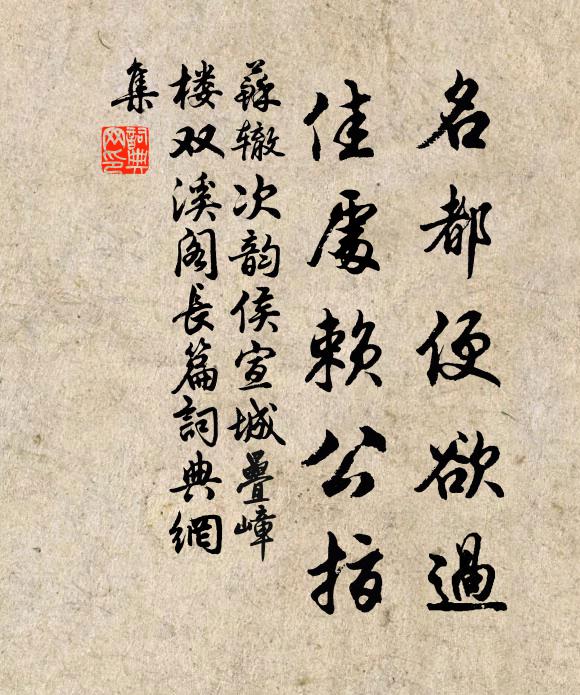 名都便欲過
佳處賴公指
蘇辙次韵侯宣城疊嶂
楼双溪阁長篇詞典網
集
詞典网印